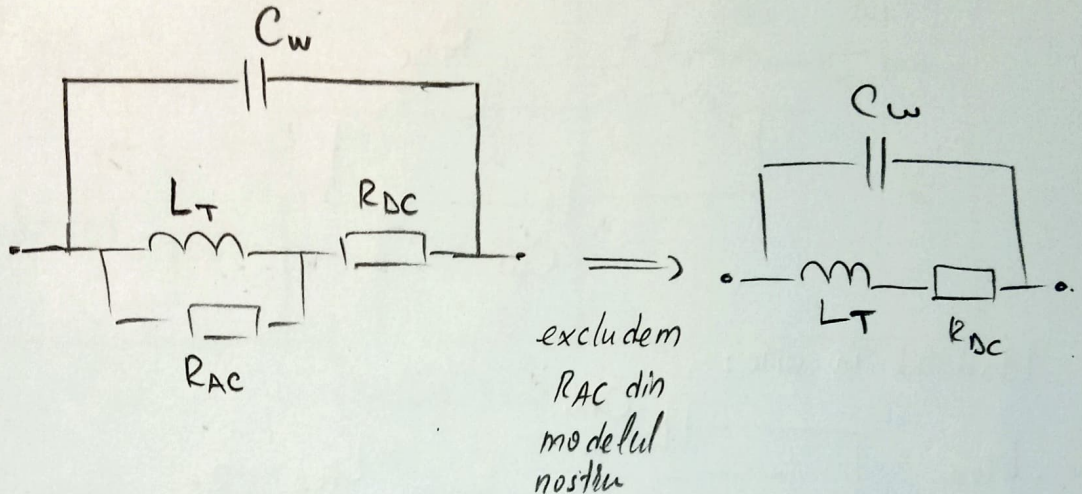 Cw
LT
RDC
RAC
excludem
RAC din
modelul
nostru
Cw
LT
RDC